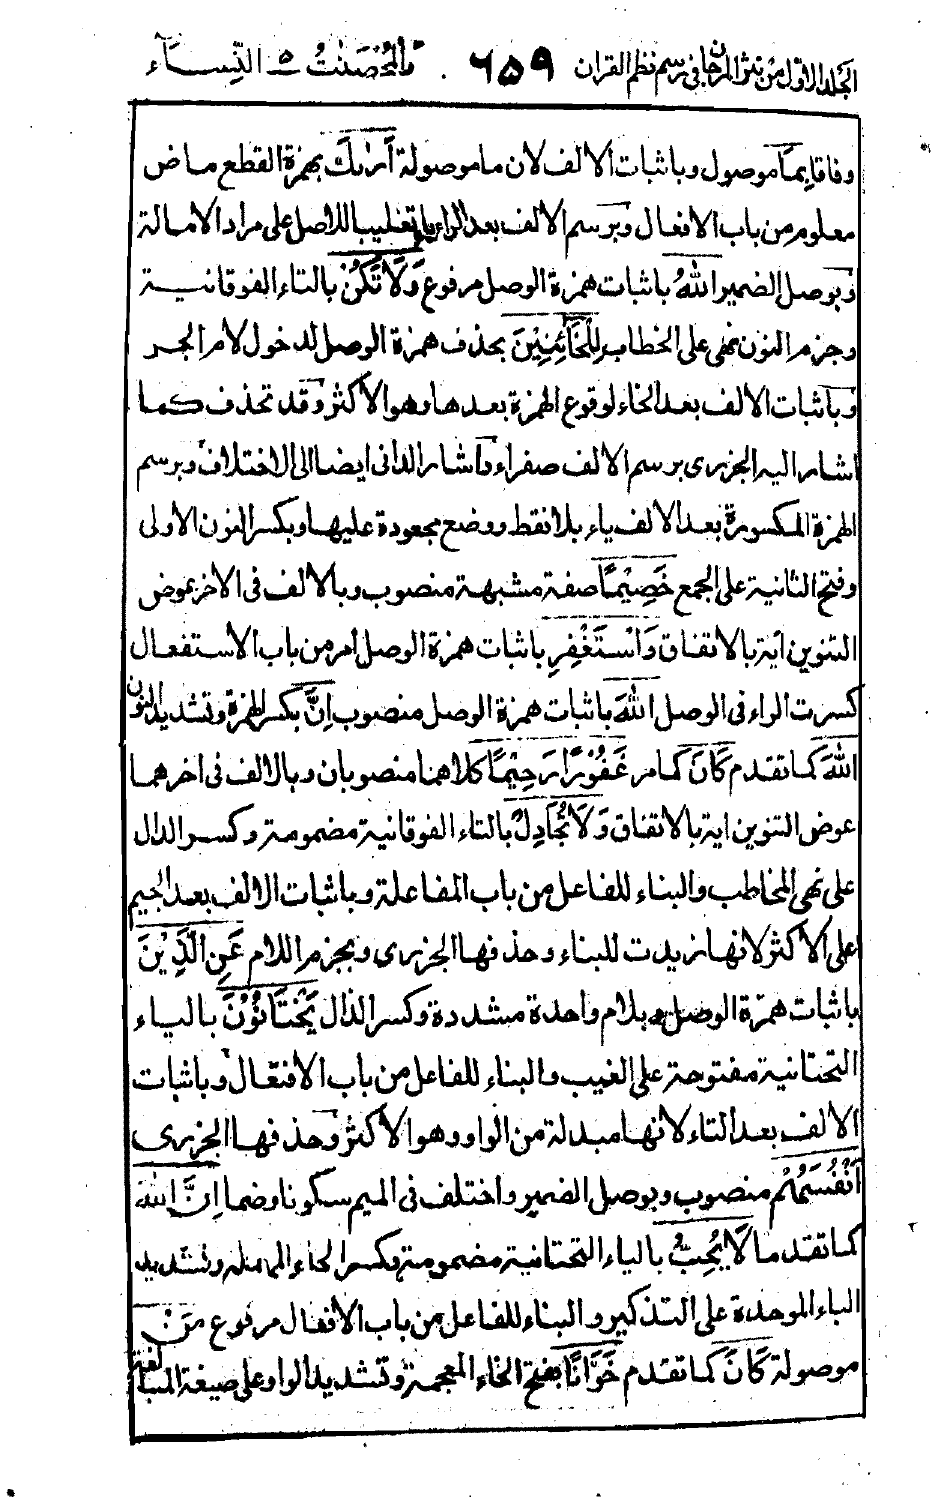 الجلد الاول من نثر المرجان فى رسم نظم القران ٦٥٩ والمحصنت ٥ النساء
وفاقا بِمَآ موصول وباثبات الالف لان ما موصولة أَرٰىكَ بهمزة القطع ماض
معلوم من باب الافعال وبرسم الالف بعد الراء ياء تغليبا للاصل على مراد الامالة
وبوصل الضمير اللّٰهُ باثبات همزة الوصل مرفوع وَلَا تَكُنْ بالتاء الفوقانية
وجزم النون نهى على الخطاب لِلْخَآئِنِيْنَ بحذف همزة الوصل لدخول لام الجر
وباثبات الالف بعد الخاء لوقوع الهمزة بعدها وهو الاكثر وقد تحذف كما
اشار اليه الجزرى برسم الالف صفراء واشار الدانى ايضا الى الاختلاف وبرسم
الهمزة المكسورة بعد الالف ياء بلا نقط ووضع مجعودة عليها وبكسر النون الاولى
وفتح الثانية على الجمع خَصِيْمًا صفة مشبهة منصوب وبالالف فى الاخر عوض
التنوين اية بالاتفاق وَاسْتَغْفِرِ باثبات همزة الوصل امر من باب الاستفعال
كسرت الراء فى الوصل اللّٰهَ باثبات همزة الوصل منصوب اِنَّ بكسر الهمزة وتشديد النون
اللّٰهَ كما تقدم كَانَ كما مر غَفُوْرًا رَحِيْمًا كلاهما منصوبان وبالالف فى اخرهما
عوض التنوين اية بالاتفاق وَلَا تُجَادِلْ بالتاء الفوقانية مضمومة وكسر الدال
على نهى المخاطب والبناء للفاعل من باب المفاعلة وباثبات الالف بعد الجيم
على الاكثر لانها زيدت للبناء وحذفها الجزرى وبجزم اللام عَنِ الَّذِيْنَ
باثبات همزة الوصل وبلام واحدة مشددة وكسر الذال يَخْتَانُوْنَ بالياء
التحتانية مفتوحة على الغيب والبناء للفاعل من باب الافتعال وباثبات
الالف بعد التاء لانها مبدلة من الواو وهو الاكثر وحذفها الجزرى
اَنْفُسَهُمْ منصوب وبوصل الضمير واختلف فى الميم سكونا وضما اِنَّ اللّٰهَ
كما تقدما لَا يُحِبُّ بالياء التحتانية مضمومة وكسر الحاء المهملة وتشديد
الباء الموحدة على التذكير والبناء للفاعل من باب الافعال مرفوع مَنْ
موصولة كَانَ كما تقدم خَوَّانًا بفتح الخاء المعجمة وتشديد الواو على صيغة المبالغة